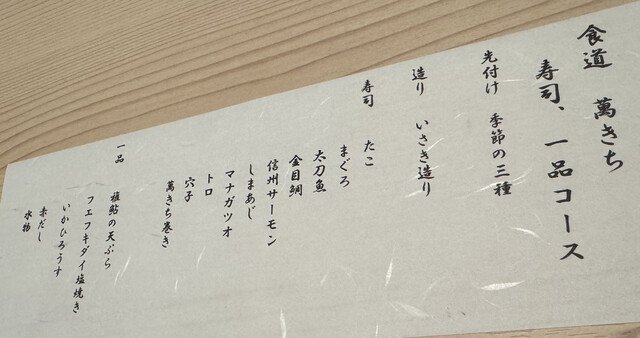 食道 萬きち
寿司、一品コース
先付け 季節の三種
造り いさき造り
寿司 たこ
まぐろ
太刀魚
金目鯛
信州サーモン
しまあじ
マナガツオ
トロ
穴子
萬きち巻き
一品 稚鮎の天ぷら
フエフキダイ塩焼き
いかひろうす
赤だし
水物